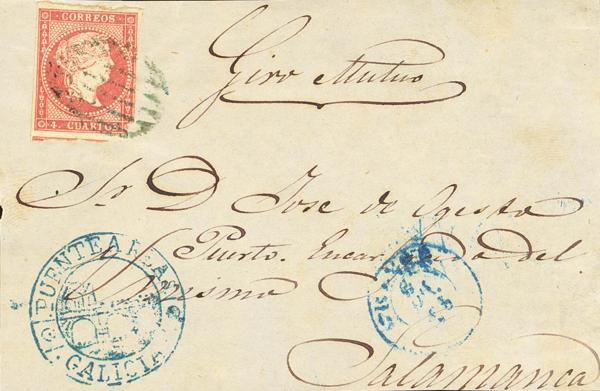 CORREOS
4. CUARTOS
Giro Mutuo
Sr D Jose de Ogesto
Puerto. Encargado del
mismo
PUENTEAREAS
GALICIA
Salamanca